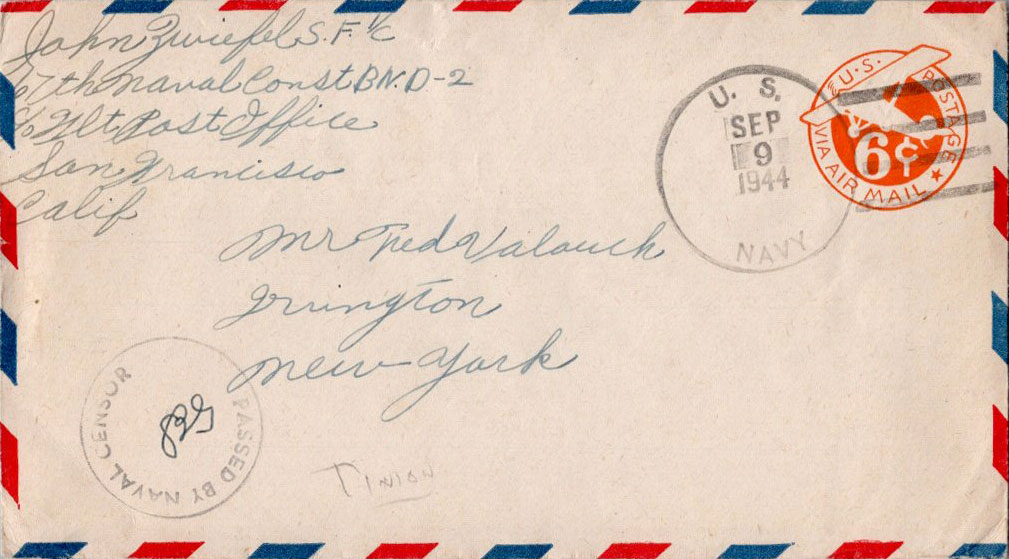 John Zwiefel S.F. 1/C
67th Naval Const. BN. D-2
c/o Flt. Post Office
San Francisco
Calif
U. S.
SEP
9
1944
NAVY
U.S. POSTAGE
VIA AIR MAIL
6¢
Mr Ted Valauch
Irvington
New York
PASSED BY NAVAL CENSOR
Tinian